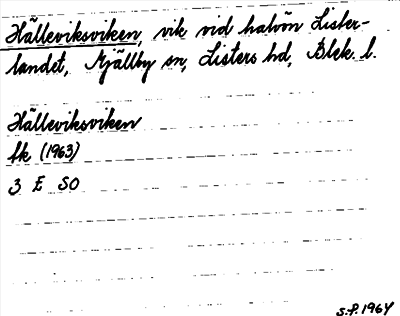 Hälleviksviken, vik vid halvön Lister-
landet, Mjällby sn, Listers hd, Blek. l.
Hälleviksviken
fk (1963)
3 E SO
S.P. 1964